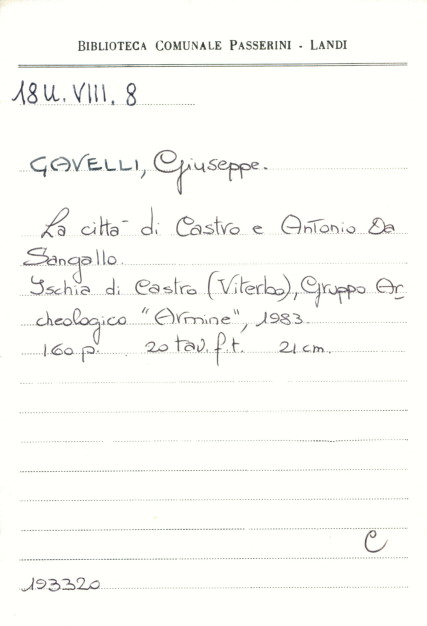 BIBLIOTECA COMUNALE PASSERINI - LANDI
18U. VIII. 8
GAVELLI, Giuseppe.
La città di Castro e Antonio Da
Sangallo.
Ischia di Castro (Viterbo), Gruppo Ar
cheologico "Armine", 1983.
160 p. 20 tav. f.t. 21 cm.
C
193320